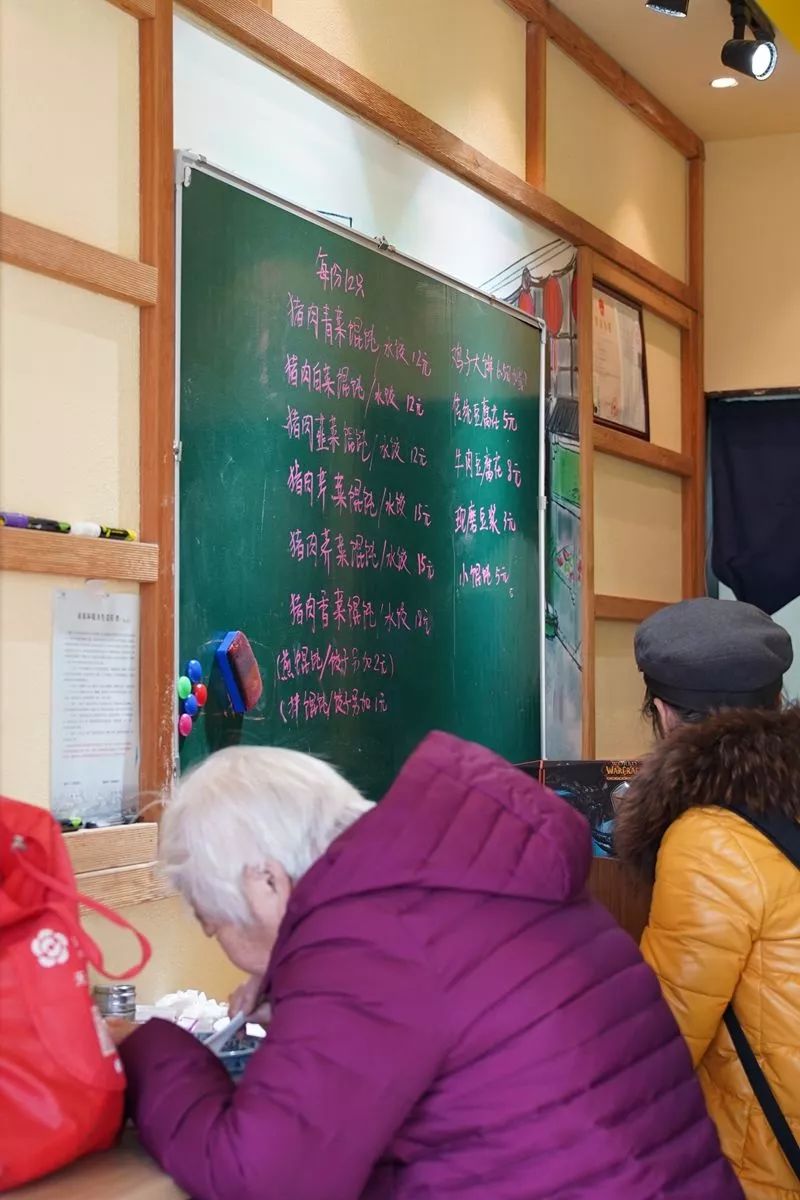 每份12只
猪肉青菜馄饨/水饺 12元
猪肉白菜馄饨/水饺 12元
猪肉韭菜馄饨/水饺 12元
猪肉芹菜馄饨/水饺 15元
猪肉荠菜馄饨/水饺 15元
猪肉香菜馄饨/水饺 12元
(煎馄饨/饺子另加2元)
(拌馄饨/饺子另加1元
鸡子大饼 6元
传统豆腐 5元
牛肉豆腐 8元
现磨豆浆 3元
小馄饨 5元
WORLD
WARCRAFT